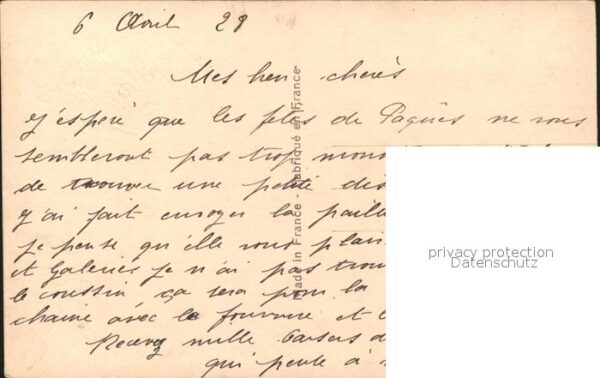 6 Avril 28
Mes bien chères
J'espère que les fêtes de Pâques ne vous
sembleront pas trop
de trouver une petite
J'ai fait envoyer la
Je pense qu'elle vous
et Galeries je n'ai pas
le coussin ça sera pour la
avec le et
Recevez mille
qui pense à
Made in France - Fabriqué en France
privacy protection
Datenschutz